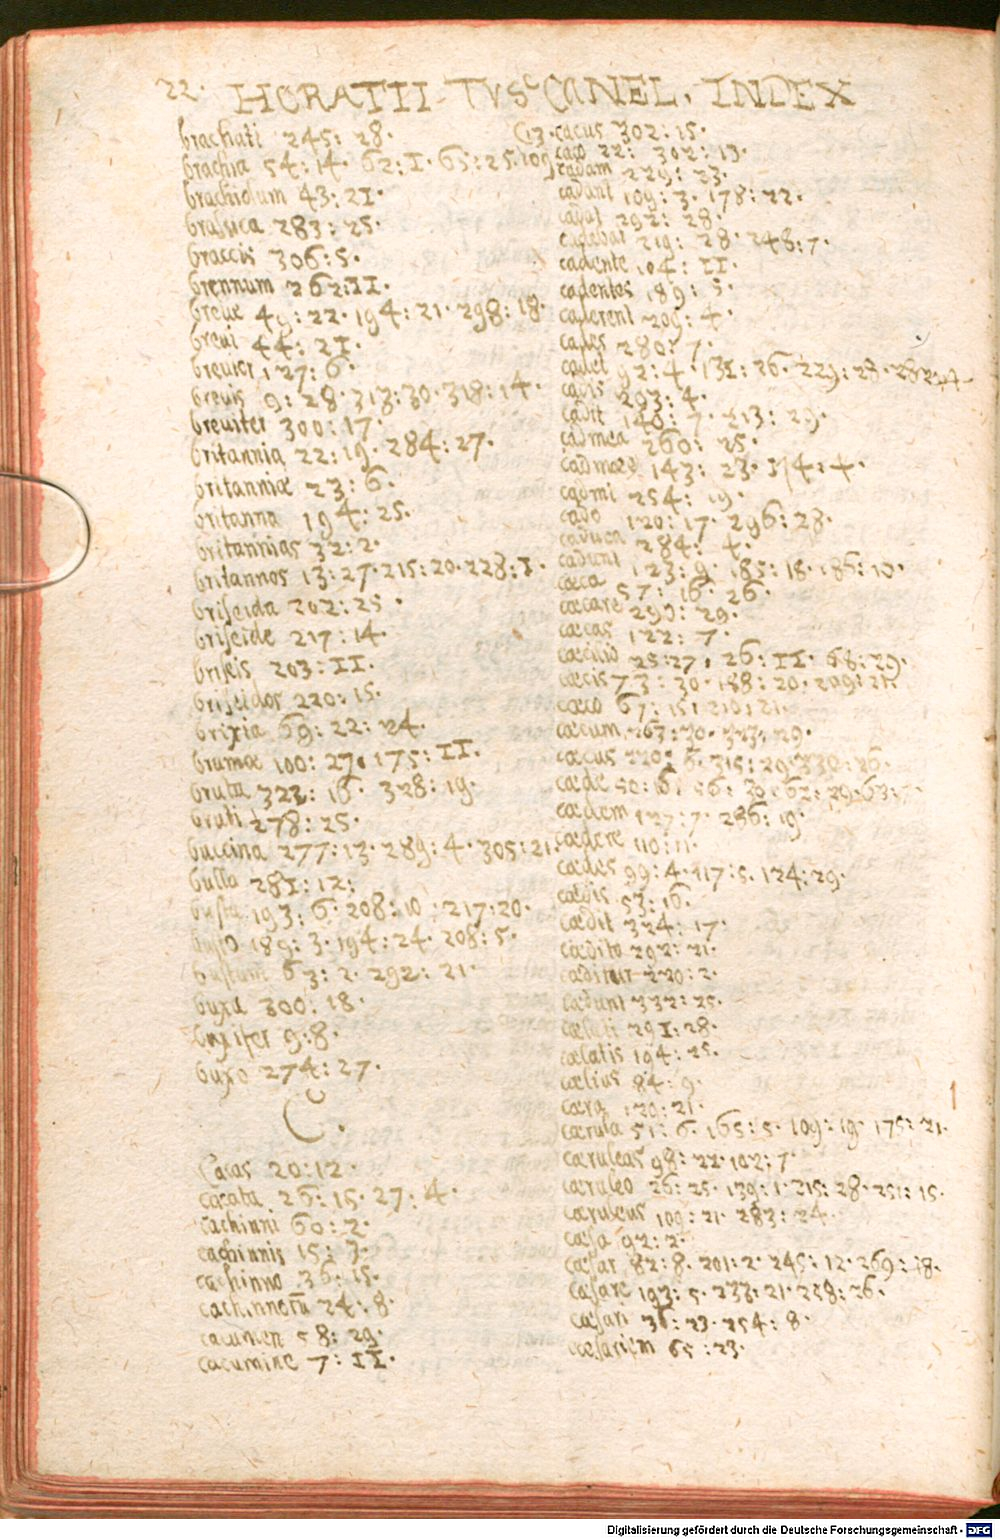 22. HORATII TVSCANEL. INDEX
brachati 245: 28.
brachia 54: 14. 62: I. 65: 25. 109
brachiolum 43: 21.
brassica 283: 25.
braccis 306: 5.
brennum 262: II.
breue 49: 22. 194: 21. 298: 18.
breui 44: 21.
breuior 127: 6.
breuis 9: 28. 313: 30. 318: 14.
breuiter 300: 17.
britannia 22: 19. 284: 27.
britanniæ 23: 6.
britanna 194: 25.
britannias 32: 2.
britannos 13: 27. 215: 20. 228: I.
briseida 202: 25.
briseide 217: 14.
briseis 203: II.
briseidos 220: 15.
brixia 69: 22: 24.
brumæ 100: 27. 175: II.
bruta 322: 16. 328: 19.
bruti 278: 25.
buccina 277: 13. 289: 4. 305: 21.
bulla 281: 12:
busta 193: 6. 208: 10: 217: 20.
busto 189: 3. 194: 24. 208: 5.
bustum 63: 2. 292: 21.
buxa 300: 18.
buxifer 9: 8.
buxo 274: 27.
C.
Cacas 20: 12.
cacata 26: 15. 27: 4.
cachinni 60: 2.
cachinnis 15: 3.
cachinno 36: 15.
24: 8.
cacumen 58: 29.
cacumine 7: II.
(13. cacus 302: 15.
caco 22: 302: 13.
cadam 229: 23.
cadant 109: 3. 178: 22.
cadat 292: 28.
cadebat 219: 28. 248: 7.
cadente 104: II.
cadentes 189: 5.
caderent 209: 4.
cades 280: 7.
cadet 92: 4. 131: 26. 229: 28.
cadis 293: 4.
cadit 148: 7. 213: 29.
cadmea 260: 25.
143: 23.
cadmi 254: 19.
cado 120: 17. 296: 28.
caduca 284: 4.
cadunt 123: 9. 185: 18. 186: 10.
cæca 57: 16. 26.
cæcare 290: 29.
cæcas 122: 7.
cæcilio 25: 27. 26: II. 68: 29.
cæcis 73: 30. 188: 20. 209: 21.
cæco 67: 15: 210: 21.
cæcum 263: 30. 323: 29.
cæcus 220: 6. 315: 29. 330: 26.
cæde 50: 6. 56: 30. 62: 29. 63: 7.
cædem 127: 7. 286: 19.
cædere 110: 11.
cædes 99: 4. 117: 5. 124: 29.
cædis 53: 16.
cædit 324: 17.
cædito 292: 21.
cæditur 220: 2.
cædunt 332: 25.
291: 28.
cælatis 194: 25.
cælius 84: 9.
cæra 120: 21.
cærula 51: 6. 165: 5. 109: 19. 175: 21.
cæruleas 98: 22. 102: 7.
cæruleo 26: 25. 139: 1. 215: 28. 251: 15.
cæruleus 109: 21. 283: 24.
cæsa 92: 2.
cæsar 82: 8. 201: 2. 245: 12. 269: 18.
cæsare 193: 5. 232: 21. 238: 26.
cæsari 36: 23. 254: 8.
cæsariem 65: 23.
1
Digitalisierung gefördert durch die Deutsche Forschungsgemeinschaft - DFG